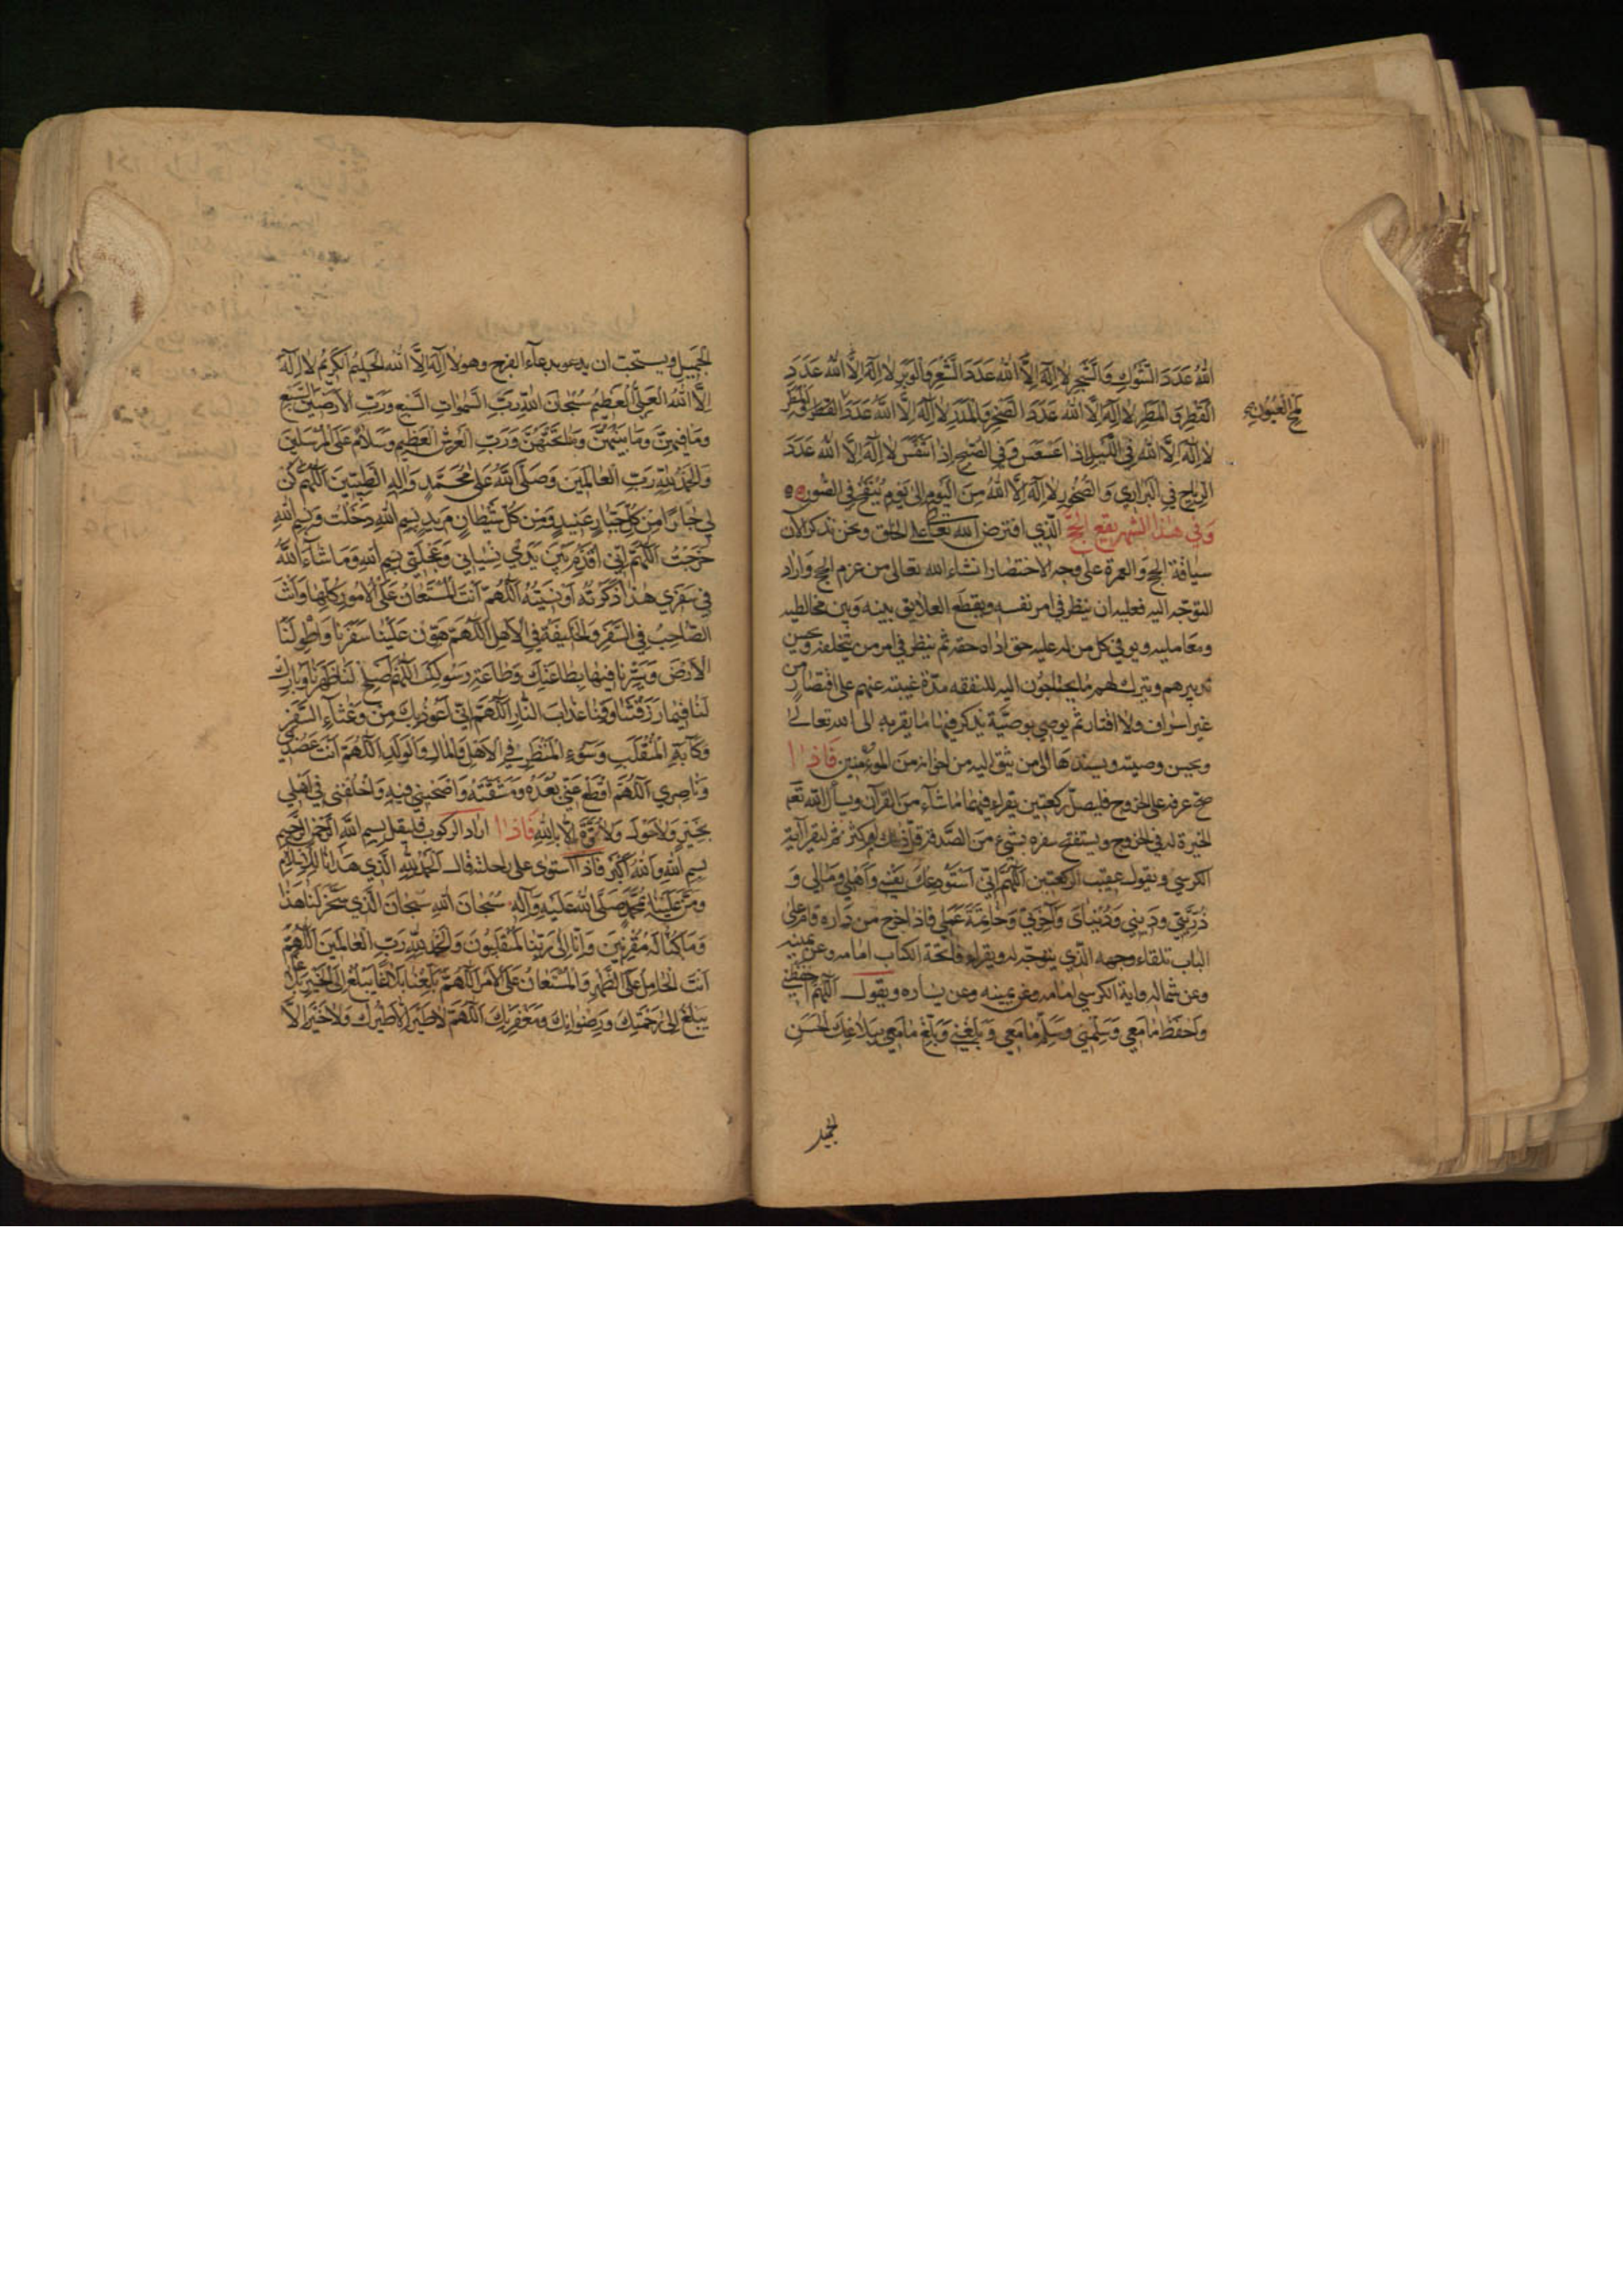 اللهُ عَدَدَ الشَّوْكِ وَالشَّجَرِ لَا إِلَهَ إِلَّا اللهُ عَدَدَ الشَّعْرِ وَالْوَبَرِ لَا إِلَهَ إِلَّا اللهُ عَدَدَ
القَطْرِ وَ المَطَرِ لَا إِلَهَ إِلَّا اللهُ عَدَدَ الصَّخْرِ وَالْمَدَرِ لَا إِلَهَ إِلَّا اللهُ عَدَدَ
لمح العيون
لَا إِلَهَ إِلَّا اللهُ فِي اللَّيْلِ إِذَا عَسْعَسَ وَفِي الصُّبْحِ إِذَا تَنَفَّسَ لَا إِلَهَ إِلَّا اللهُ عَدَدَ
الرِّيَاحِ فِي البَرَارِي وَ الصُّخُورِ لَا إِلَهَ إِلَّا اللهُ مِنَ الْيَوْمِ إِلَى يَوْمِ يُنْفَخُ فِي الصُّورِ
وَفِي هٰذَا الشهر يقع الحَجُّ الَّذِي افترض الله تعالى على الخلق ونحن نذكر الآن
سياقة الحج وَ العمرة على وجه الاختصار انشاء الله تعالى من عزم الحج واراد
التوجّه اليه فعليه ان ينظر في امر نفسه ويقطع العلايق بينه وَبين مخالطيه
ومعامليه ويوفي كل من له عليه حق اذاه حقه ثم ينظر في امر من يتخلفه ويحسن
تدبيرهم ويترك لهم ما يحتاجون اليه للنفقه مدّة غيبته عنهم على اقتصار من
غير اسراف ولا اقتار ثم يوصي بوصيَّة يذكر فيها ما يقربه الى الله تعالى
ويحسن وصيته ويسندها الى من يثق اليه من اخوانه من المؤمنين فَاذا
صح عزمه على الخروج فليصلّ ركعتين يقراء فيهما ما شاء من القرآن ويسأل الله تعالى
الخيرة له في الخروج ويستفتح سفره بشيء من الصَّدقة قلّ ذلك او كثر ثم ليقرأ آية
الكرسي ويقول عقيب الركعتين اَللّٰهُمَّ اِنّي اَسْتَوْدِعُكَ نَفْسِي وَاَهْلِي وَمَالِي وَ
ذُرِّيَّتِي وَدِينِي وَدُنْيَايَ وَآخِرَتِي وَخَاتِمَةَ عَمَلِي فاذا خرج من داره قام على
الباب تلقاء وجهه الَّذي يتوجّه له ويقراء فاتحة الكتاب امامه وعن يمينه
وعن شماله واية الكرسي امامه وعن يمينه وعن يساره ويقول اللّٰهُمَّ احْفَظْنِي
وَاحْفَظْ مَا مَعِي وَسَلِّمْنِي وَسَلِّمْ مَا مَعِي وَبَلِّغْنِي وَبَلِّغْ مَا مَعِي بِبَلَاغِكَ الْحَسَنِ
الجَمِيلِ ويستحبّ ان يدعو بدعآء الفرج وهو لَا إِلَهَ إِلَّا اللهُ الحَلِيمُ الكَرِيمُ لَا إِلَهَ
إِلَّا اللهُ العَلِيُّ العَظِيمُ سُبْحَانَ اللهِ رَبِّ السَّمٰوَاتِ السَّبْعِ وَرَبِّ الأَرَضِينَ السَّبْعِ
وَمَا فِيهِنَّ وَمَا بَيْنَهُنَّ وَمَا تَحْتَهُنَّ وَرَبِّ العَرْشِ العَظِيمِ وَسَلَامٌ عَلَى المُرْسَلِينَ
وَالحَمْدُ لِلّٰهِ رَبِّ العَالَمِينَ وَصَلَّى اللهُ عَلَى مُحَمَّدٍ وَآلِهِ الطَّيِّبِينَ اَللّٰهُمَّ كُنْ
لِي جَارًا مِنْ كُلِّ جَبَّارٍ عَنِيدٍ وَمِنْ كُلِّ شَيْطَانٍ مَرِيدٍ بِسْمِ اللهِ دَخَلْتُ وَبِسْمِ اللهِ
خَرَجْتُ اَللّٰهُمَّ إِنِّي أُقَدِّمُ بَيْنَ يَدَيْ نِسْيَانِي وَعَجَلَتِي بِسْمِ اللهِ وَمَا شَاءَ اللهُ
فِي سَفَرِي هٰذَا ذَكَرْتُهُ أَوْ نَسِيتُهُ اَللّٰهُمَّ أَنْتَ المُسْتَعَانُ عَلَى الأُمُورِ كُلِّهَا وَأَنْتَ
الصَّاحِبُ فِي السَّفَرِ وَالخَلِيفَةُ فِي الأَهْلِ اَللّٰهُمَّ هَوِّنْ عَلَيْنَا سَفَرَنَا وَاطْوِ لَنَا
الأَرْضَ وَسَيِّرْنَا فِيهَا بِطَاعَتِكَ وَطَاعَةِ رَسُولِكَ اَللّٰهُمَّ أَصْلِحْ لَنَا ظَهْرَنَا وَبَارِكْ
لَنَا فِيمَا رَزَقْتَنَا وَقِنَا عَذَابَ النَّارِ اَللّٰهُمَّ إِنِّي أَعُوذُ بِكَ مِنْ وَعْثَاءِ السَّفَرِ
وَكَآبَةِ المُنْقَلَبِ وَسُوءِ المَنْظَرِ فِي الأَهْلِ وَالمَالِ وَالوَلَدِ اَللّٰهُمَّ أَنْتَ عَضُدِي
وَنَاصِرِي اَللّٰهُمَّ اقْطَعْ عَنِّي بُعْدَهُ وَمَشَقَّتَهُ وَاصْحَبْنِي فِيهِ وَاخْلُفْنِي فِي أَهْلِي
بِخَيْرٍ وَلَا حَوْلَ وَلَا قُوَّةَ إِلَّا بِاللهِ فَاذا اراد الركوب فليقل بِسْمِ اللهِ الرَّحْمٰنِ الرَّحِيمِ
بِسْمِ اللهِ وَاللهُ أَكْبَرُ فاذا استوى على راحلته قال اَلْحَمْدُ لِلّٰهِ الَّذِي هَدَانَا لِلْإِسْلَامِ
وَمَنَّ عَلَيْنَا بِمُحَمَّدٍ صَلَّى اللهُ عَلَيْهِ وَآلِهِ سُبْحَانَ اللهِ سُبْحَانَ الَّذِي سَخَّرَ لَنَا هٰذَا
وَمَا كُنَّا لَهُ مُقْرِنِينَ وَإِنَّا إِلَى رَبِّنَا لَمُنْقَلِبُونَ وَالحَمْدُ لِلّٰهِ رَبِّ العَالَمِينَ اَللّٰهُمَّ
أَنْتَ الحَامِلُ عَلَى الظَّهْرِ وَالمُسْتَعَانُ عَلَى الأَمْرِ اَللّٰهُمَّ بَلِّغْنَا بَلَاغًا يَبْلُغُ إِلَى الخَيْرِ بَلَاغًا
يَبْلُغُ إِلَى رَحْمَتِكَ وَرِضْوَانِكَ وَمَغْفِرَتِكَ اَللّٰهُمَّ لَا طَيْرَ إِلَّا طَيْرُكَ وَلَا خَيْرَ إِلَّا